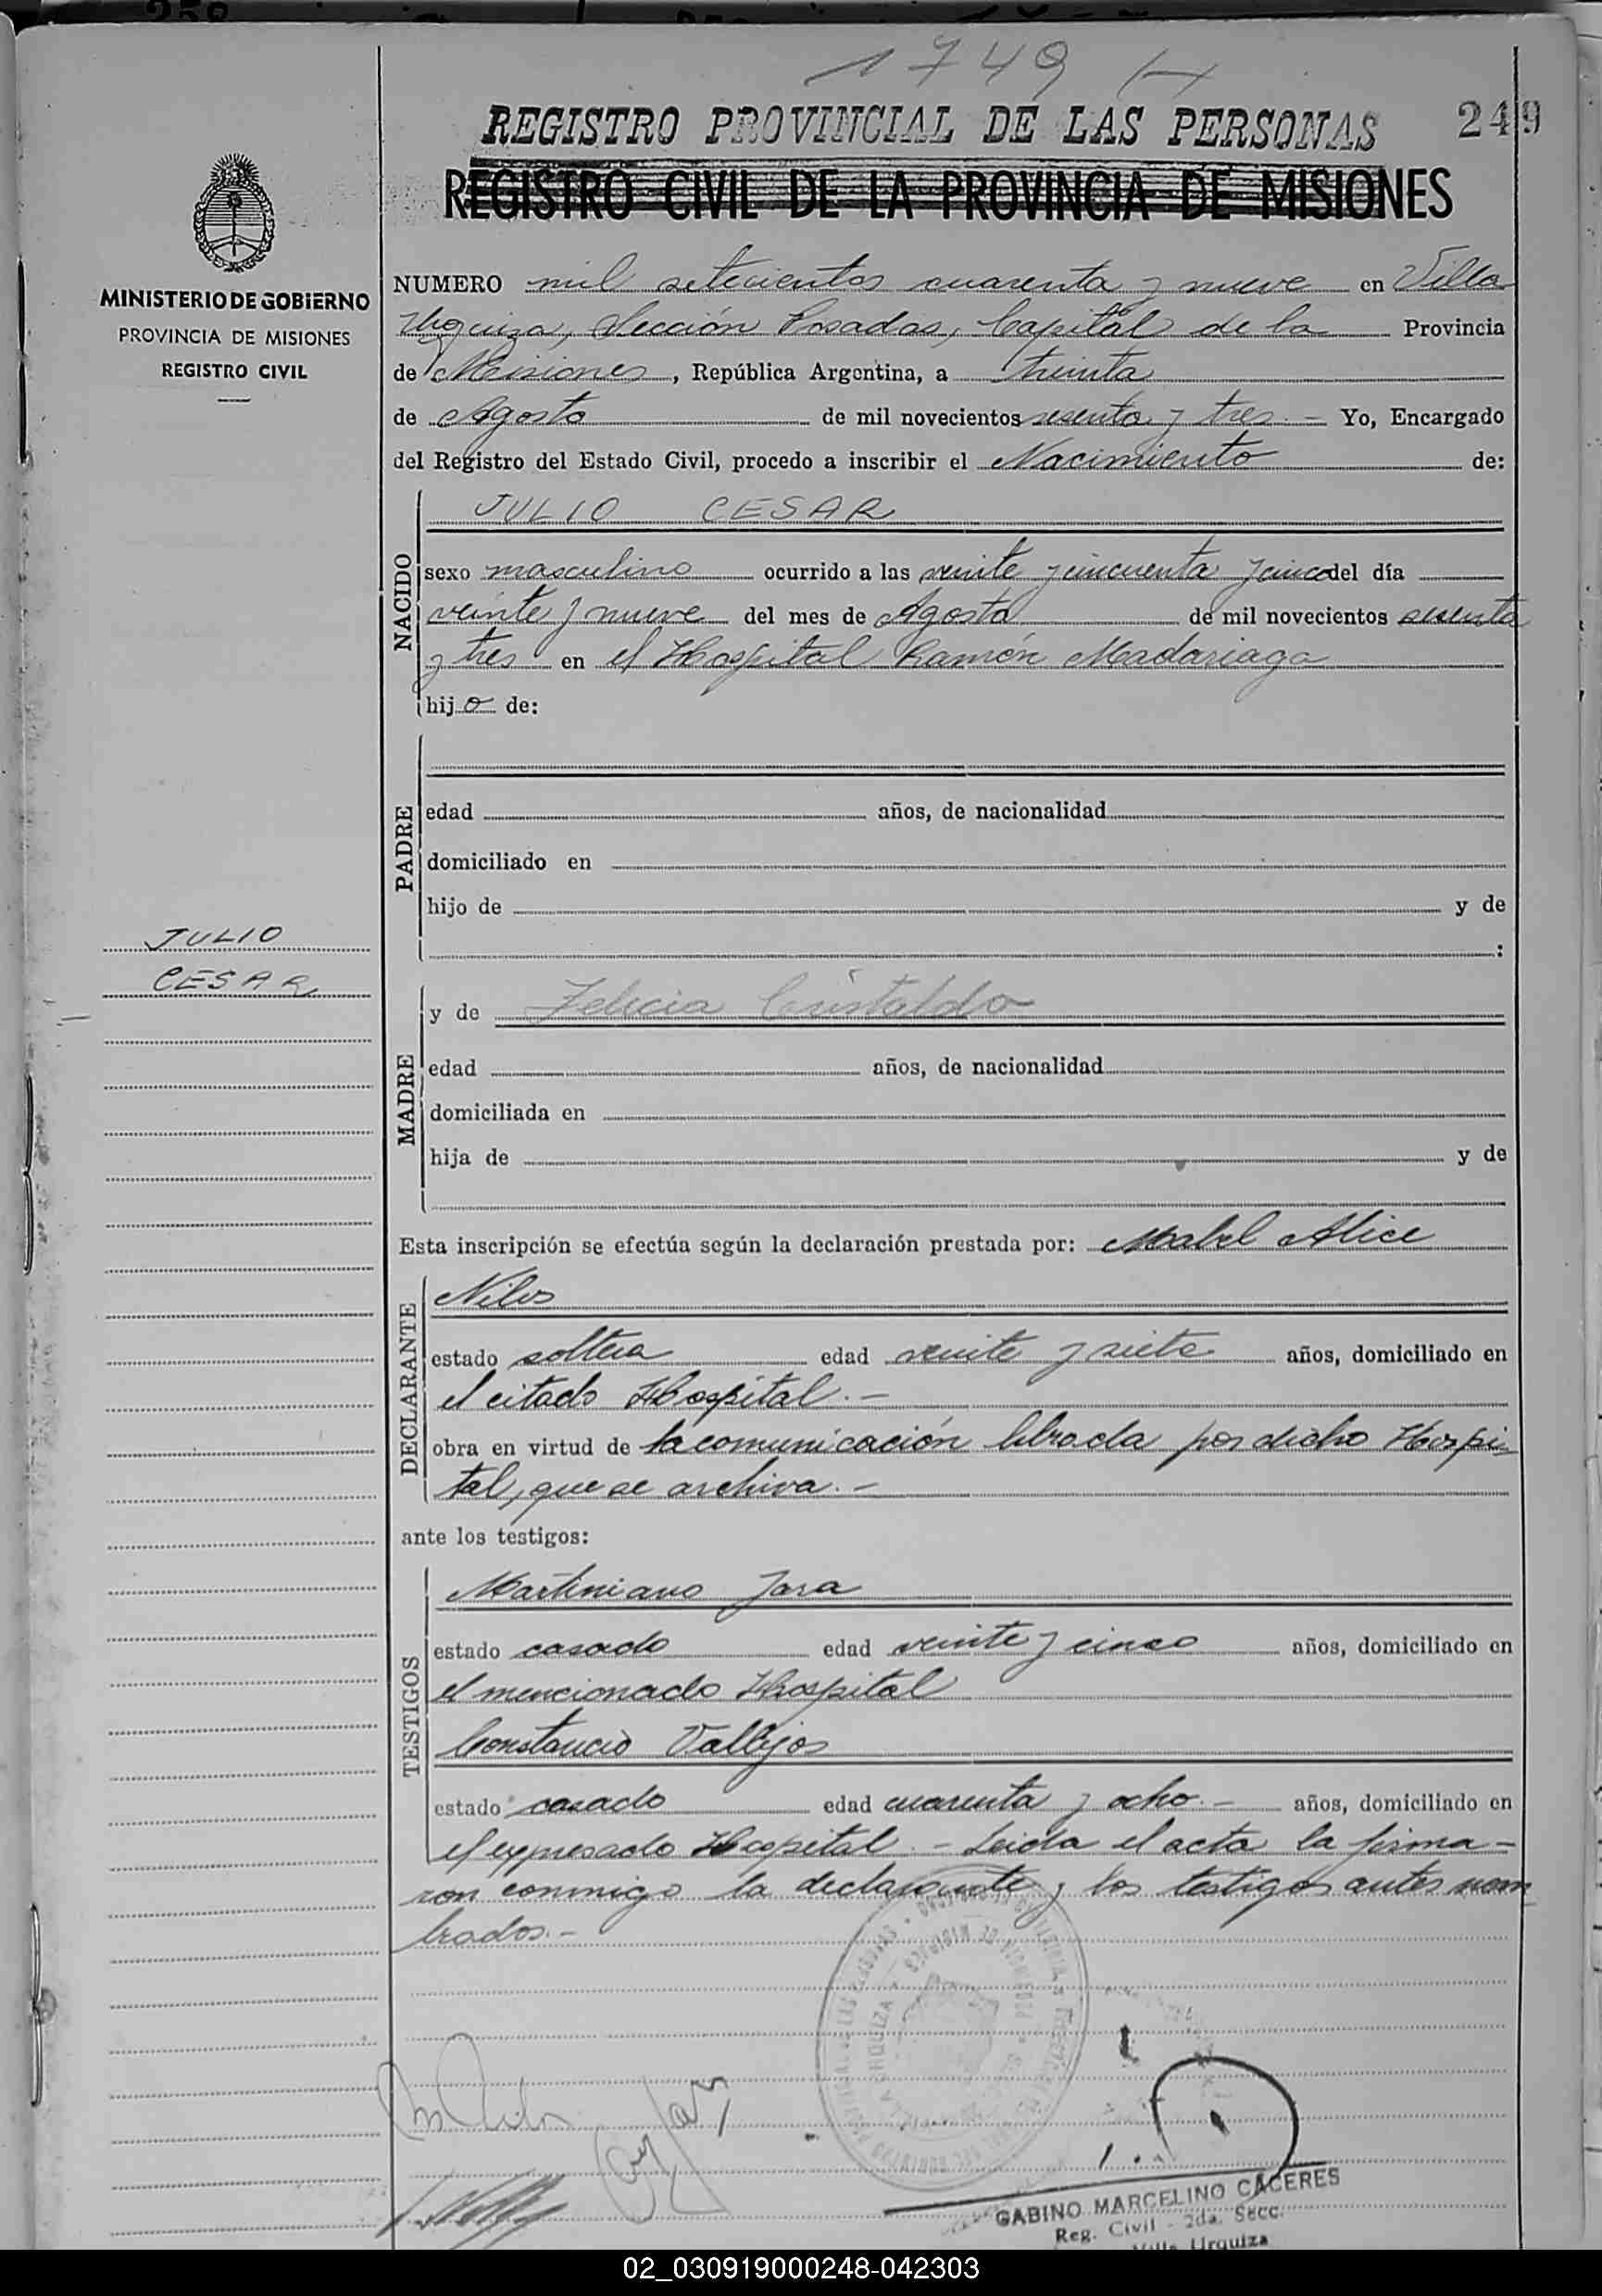 1749
REGISTRO PROVINCIAL DE LAS PERSONAS
249
REGISTRO CIVIL DE LA PROVINCIA DE MISIONES
MINISTERIO DE GOBIERNO
PROVINCIA DE MISIONES
REGISTRO CIVIL
NUMERO mil setecientos cuarenta y nueve en Villa
Urquiza, Sección Posadas, Capital de la Provincia
de Misiones, República Argentina, a treinta
de Agosto de mil novecientos sesenta y tres.- Yo, Encargado
del Registro del Estado Civil, procedo a inscribir el Nacimiento de:
JULIO CESAR
NACIDO
sexo masculino ocurrido a las veinte y cincuenta y cinco del día
veinte y nueve del mes de Agosto de mil novecientos sesenta
y tres en el Hospital Ramón Madariaga
hijo de:
PADRE
edad años, de nacionalidad
domiciliado en
hijo de y de
:
JULIO
CESAR
MADRE
y de Felicia Cristaldo
edad años, de nacionalidad
domiciliada en
hija de y de
Esta inscripción se efectúa según la declaración prestada por: Mabel Alice
DECLARANTE
Nilos
estado soltera edad veinte y siete años, domiciliado en
el citado Hospital.-
obra en virtud de la comunicación librada por dicho Hospi-
tal, que se archiva.-
ante los testigos:
TESTIGOS
Martiniano Jara
estado casado edad veinte y cinco años, domiciliado en
el mencionado Hospital
Constancio Vallejos
estado casado edad cuarenta y ocho.- años, domiciliado en
el expresado Hospital.- Leida el acta la firma-
ron conmigo la declarante y los testigos antes nom
brados.-
GABINO MARCELINO CACERES
Reg. Civil - 2da. Secc.
Villa Urquiza
02_030919000248-042303